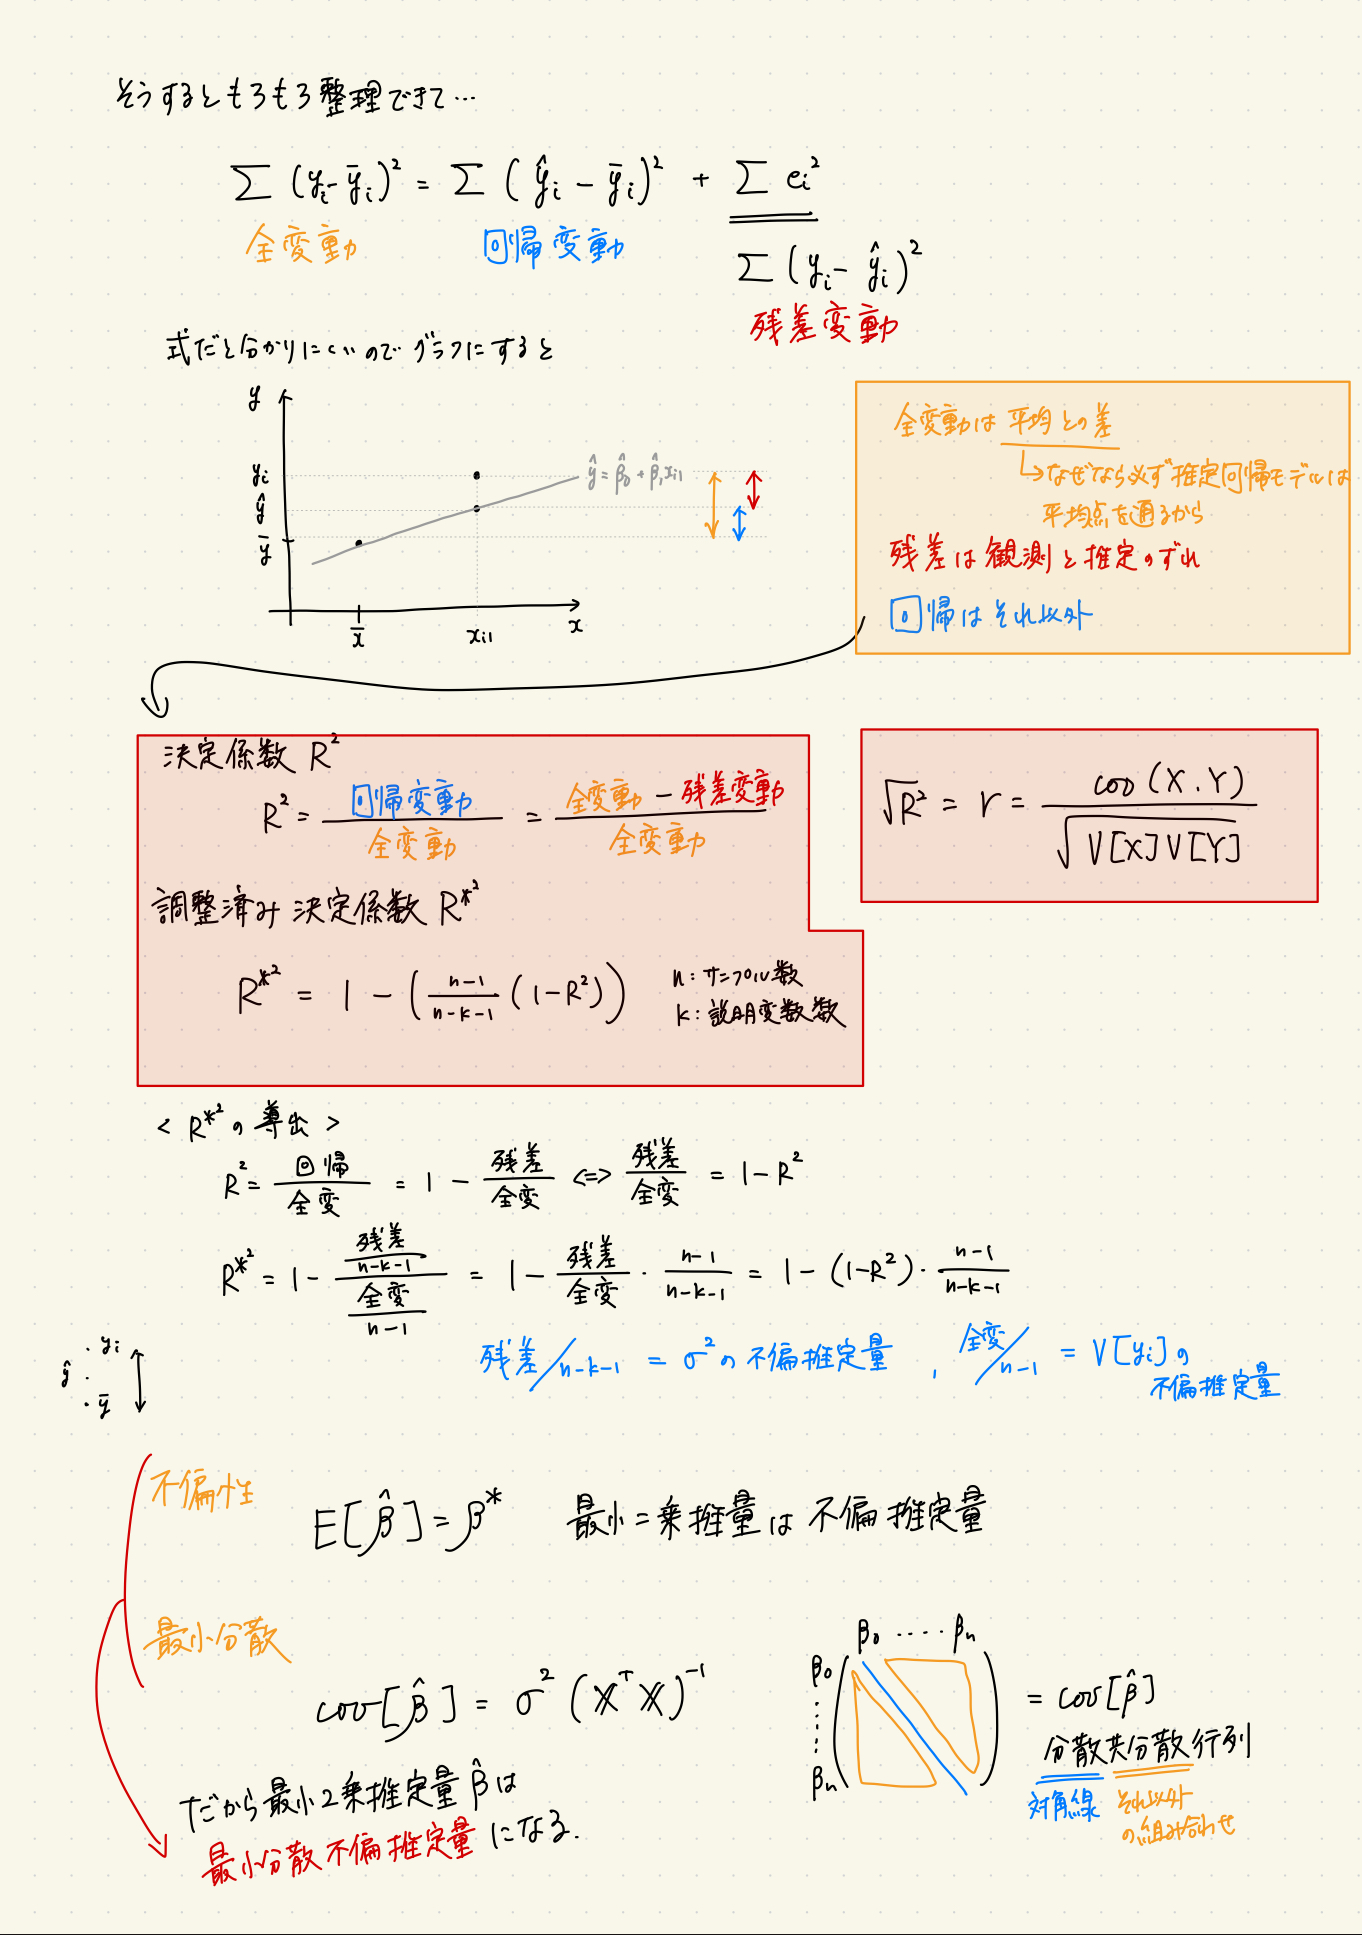 そうするともろもろ整理できて…
∑(yi-ȳi)² = ∑(ŷi - ȳi)² + ∑ei²
全変動 回帰変動
∑(yi - ŷi)²
残差変動
式だと分かりにくいのでグラフにすると
y
yi
ŷ
ȳ
ŷ = β̂0 + β̂1xi1
x̄ xi1 x
全変動は平均との差
↳なぜなら必ず推定回帰モデルは
平均点を通るから
残差は観測と推定のずれ
回帰はそれ以外
決定係数 R²
R² = 回帰変動/全変動 = (全変動 - 残差変動)/全変動
調整済み決定係数 R*²
R*² = 1 - ((n-1)/(n-k-1) (1-R²))
n:サンプル数
k:説明変数数
√R² = r = cov(X.Y)/√V[X]V[Y]
< R*²の導出 >
R² = 回帰/全変 = 1 - 残差/全変 ⇔ 残差/全変 = 1-R²
R*² = 1 - (残差/(n-k-1))/(全変/(n-1)) = 1 - 残差/全変 · (n-1)/(n-k-1) = 1 - (1-R²)·(n-1)/(n-k-1)
残差/n-k-1 = σ²の不偏推定量 , 全変/n-1 = V[yi]の
不偏推定量
yi
ŷ
ȳ
不偏性
E[β̂] = β* 最小二乗推量は不偏推定量
最小分散
cov[β̂] = σ²(XᵀX)⁻¹
β0 ‥‥ βn
β0
⋮
βn
= cov[β̂]
分散共分散行列
対角線 それ以外
の組み合わせ
だから最小2乗推定量β̂は
最小分散不偏推定量になる.